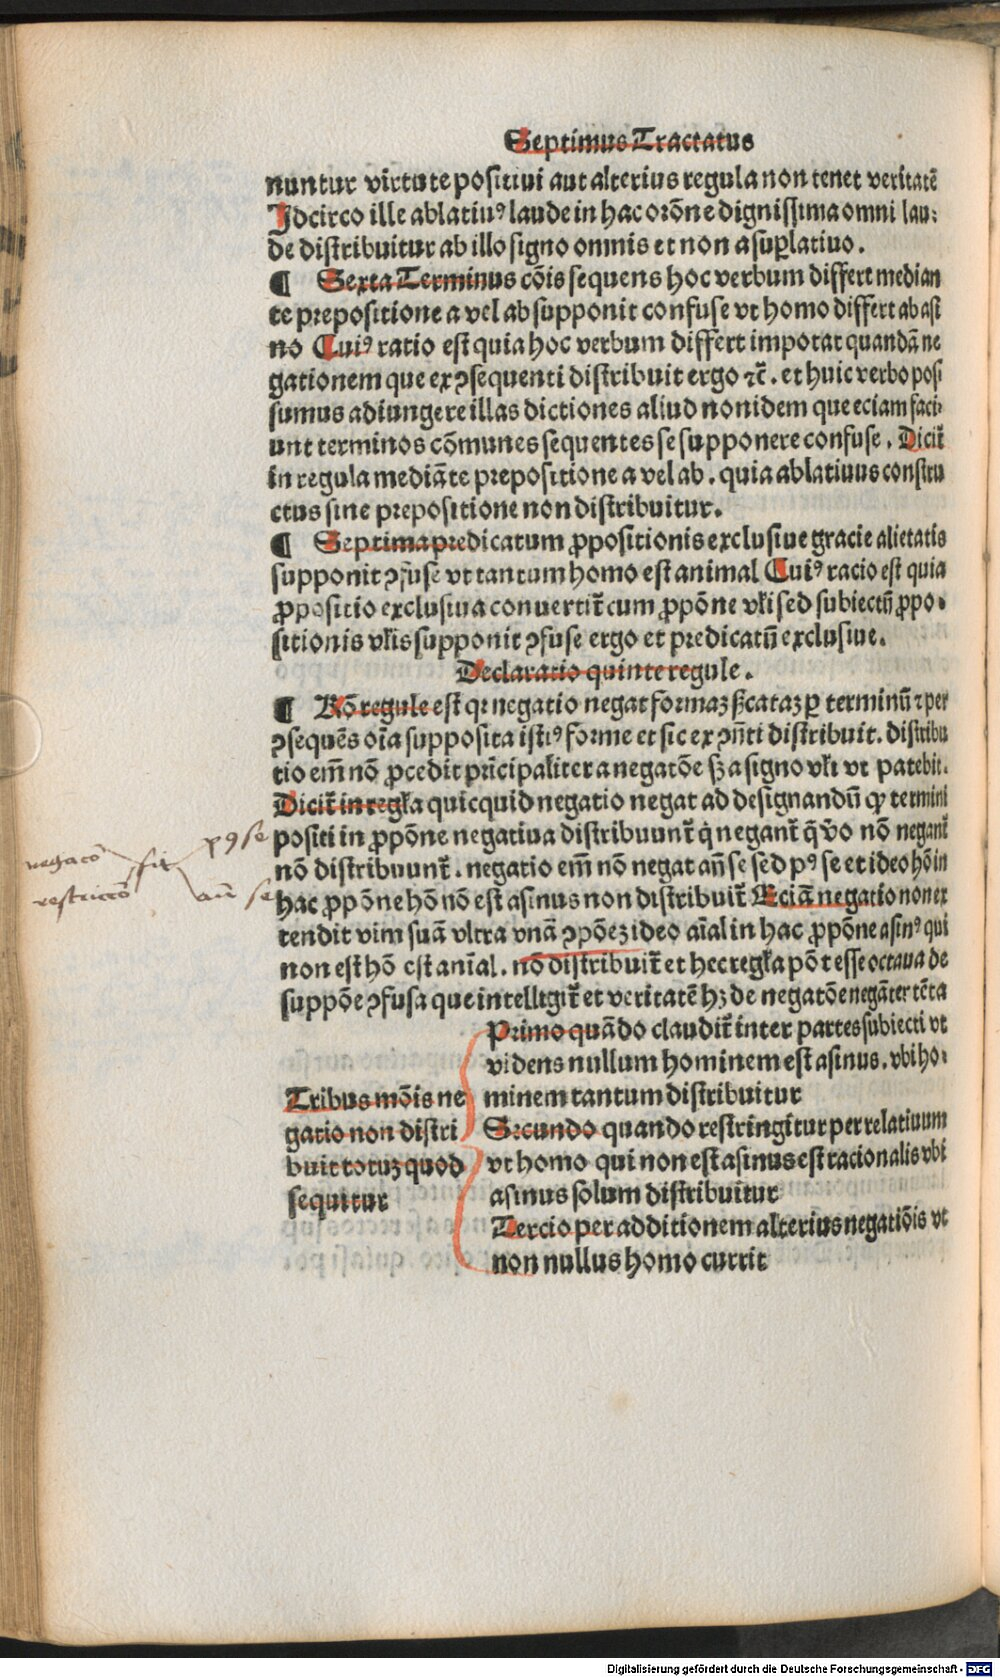 Septimus Tractatus
nuntur virtute positiui aut alterius regula non tenet veritatē
Idcirco ille ablatiuꝰ laude in hac orōne dignissima omni lau⸗
de distribuitur ab illo signo omnis et non a suꝑlatiuo.
¶ Sexta Terminus cōis sequens hoc verbum differt median
te prepositione a vel ab supponit confuse vt homo differt ab asi
no Cuiꝰ ratio est quia hoc verbum differt importat quandā ne
gationem que ex ꝯsequenti distribuit ergo ⁊c̄. et huic verbo posi
sumus adiungere illas dictiones aliud non idem que eciam faci⸗
unt terminos cōmunes sequentes se supponere confuse. Dicit̄
in regula mediāte prepositione a vel ab. quia ablatiuus constru
ctus sine prepositione non distribuitur.
¶ Septima predicatum ꝓpositionis exclusiue gracie alietatis
supponit ꝯfuse vt tantum homo est animal Cuiꝰ racio est quia
ꝓpositio exclusiua conuertit̄ cum ꝓpōne vłi sed subiectū ꝓpo⸗
sitionis vłis supponit ꝯfuse ergo et predicatū exclusiue.
Declaratio quinte regule.
¶ Rō regule est qꝛ negatio negat formaꝫ ꝑ terminū ⁊ per
ꝯsequēs oīa supposita istiꝰ forme et sic ex ꝯn̄ti distribuit. distribu
tio em̄ nō ꝓcedit prīcipaliter a negatōe sꝫ a signo vłi vt patebit.
Dicit̄ in regła quicquid negatio negat ad designandū ꝙ termini
positi in ꝓpōne negatiua distribuunt̄ q̇ negant̄ q̄ v̄o nō negant̄
nō distribuunt̄. negatio em̄ nō negat an̄ se sed pꝰ se et ideo hō in
hac ꝓpōne hō nō est asinus non distribuit̄ Eciā negatio non ex
tendit vim suā vltra vnā ꝯpōeꝫ ideo aīal in hac ꝓpōne asinꝰ qui
non est hō est anīal. nō distribuit̄ et hec regła pōt esse octaua de
suppōe ꝯfusa que intelligit̄ et veritatē hꝫ de negatōe negāter tēta
Primo quādo claudit̄ inter partes subiecti vt
videns nullum hominem est asinus. vbi ho⸗
minem tantum distribuitur
Tribus mōis ne
gatio non distri
buit totuꝫ quod
sequitur
Secundo quando restringitur per relatiuum
vt homo qui non est asinus est racionalis vbi
asinus solum distribuitur
Tercio per additionem alterius negatiōis vt
non nullus homo currit
negacō
restriccō
fit
pꝰ se
an̄ se
Digitalisierung gefördert durch die Deutsche Forschungsgemeinschaft - DFG